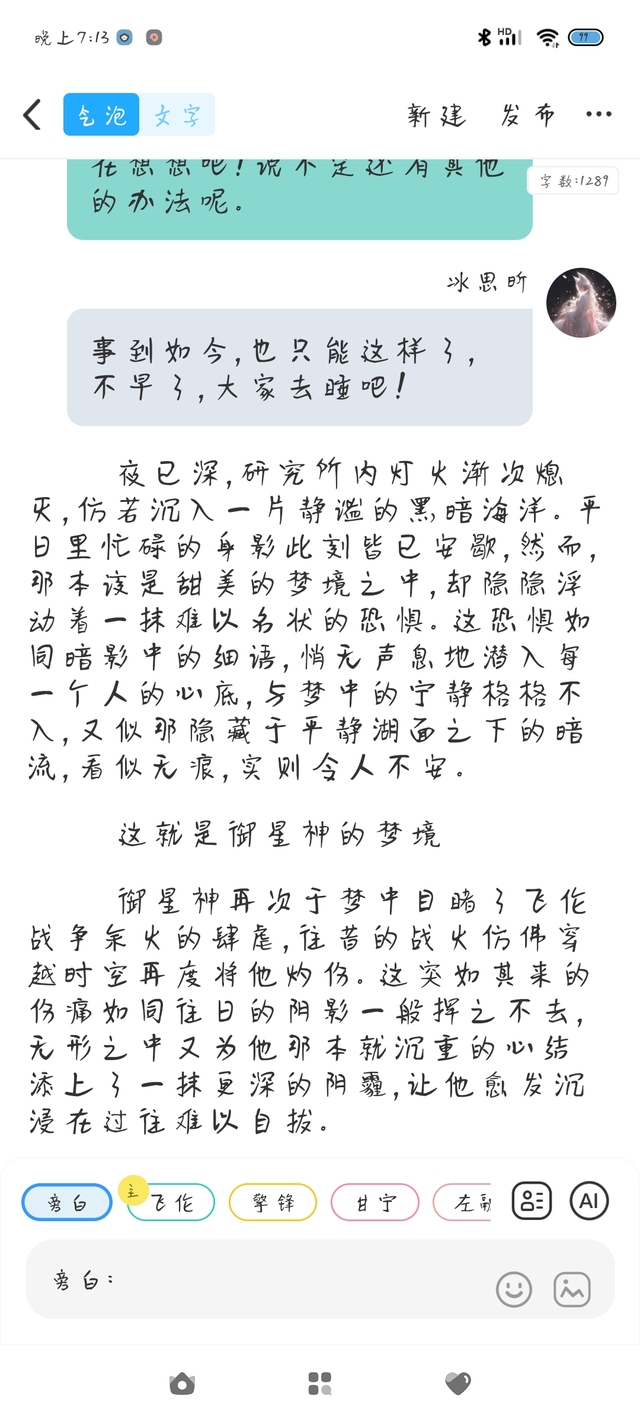 晚上7:13
HD
99
气泡 文字 新建 发布
在想想吧!说不定还有其他
的办法呢。
字数:1289
冰思昕
事到如今,也只能这样了,
不早了,大家去睡吧!
夜已深,研究所内灯火渐次熄
灭,仿若沉入一片静谧的黑暗海洋。平
日里忙碌的身影此刻皆已安歇,然而,
那本该是甜美的梦境之中,却隐隐浮
动着一抹难以名状的恐惧。这恐惧如
同暗影中的细语,悄无声息地潜入每
一个人的心底,与梦中的宁静格格不
入,又似那隐藏于平静湖面之下的暗
流,看似无痕,实则令人不安。
这就是御星神的梦境
御星神再次于梦中目睹了飞伦
战争氽火的肆虐,往昔的战火仿佛穿
越时空再度将他灼伤。这突如其来的
伤痛如同往日的阴影一般挥之不去,
无形之中又为他那本就沉重的心结
添上了一抹更深的阴霾,让他愈发沉
浸在过往难以自拔。
旁白 主 飞伦 擎锋 甘宁 左融
AI
旁白: